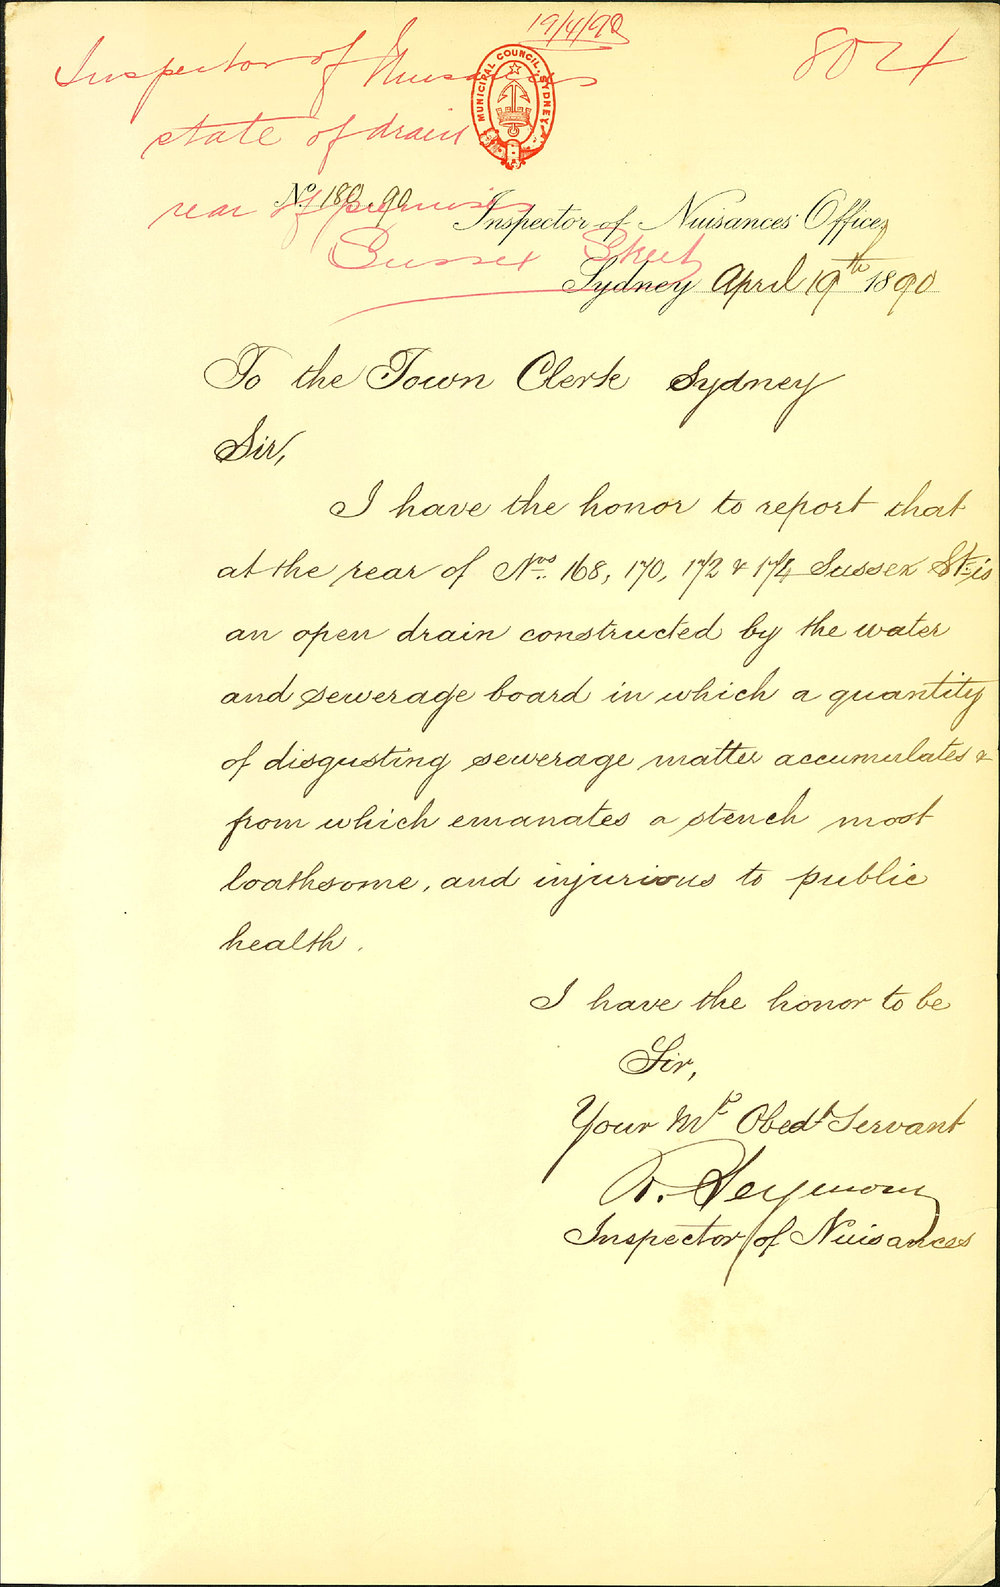 19/4/90
Inspector of Nuisances
804
state of drain
rear of premises
Sussex Street
MUNICIPAL COUNCIL, SYDNEY
No. 180.90
Inspector of Nuisances' Office,
Sydney April 19th 1890
To the Town Clerk Sydney
Sir,
I have the honor to report that
at the rear of Nos. 168, 170, 172 & 174 Sussex St. is
an open drain constructed by the water
and sewerage board in which a quantity
of disgusting sewerage matter accumulates &
from which emanates a stench most
loathsome, and injurious to public
health.
I have the honor to be
Sir,
Your Mt Obedt Servant
R. Seymour
Inspector of Nuisances